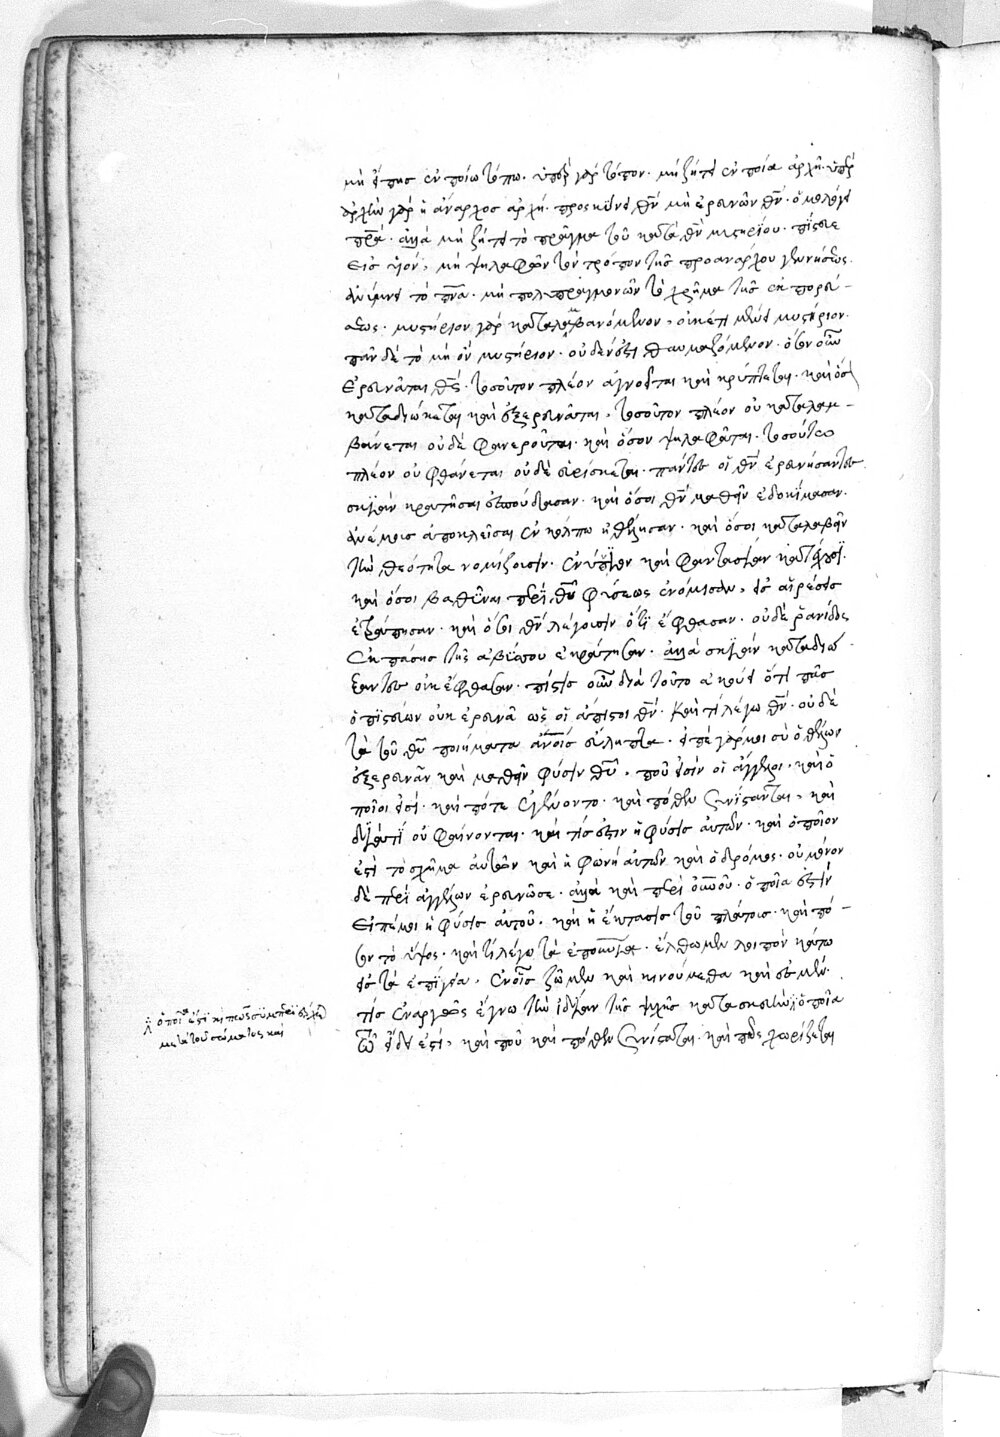 μὴ εἴπης ἐν ποίω τόπω· ὑπὲρ γὰρ τόπον· μὴ ζήτει ἐν ποία ἀρχῆ· ὑπὲρ
ἀρχὴν γὰρ ἡ ἄναρχος ἀρχή· προσκύνει θν̅ μὴ ἐρευνῶν θν̅· ὁμολόγει
πρ̅α· ἀλλὰ μὴ ζήτει τὸ πρᾶγμα τοῦ κατὰ θν̅ μυστηρίου· πίστευε
εἰς υἱόν, μὴ ψηλαφῶν τὸν τρόπον τῆς προανάρχου γεννήσεως·
ἀνύμνει τὸ πν̅α· μὴ πολυπραγμονῶν τὸ χρῆμα τῆς ἐκπορεύ-
σεως· μυστήριον γὰρ καταλαμβανόμενον, οὐκέτι μένει μυστήριον·
πᾶν δὲ τὸ μὴ ὂν μυστήριον· οὐδέν ἐστι θαυμαζόμενον· ὅσον οὖν
ἐρευνᾶται θς̅· τοσοῦτον πλέον ἀγνοεῖται καὶ κρύπτεται· καὶ ὅσ
καταδιώκεται καὶ ἐξερευνᾶται, τοσοῦτον πλέον οὐ καταλαμ-
βάνεται οὐδὲ φανεροῦται· καὶ ὅσον ψηλαφᾶται· τοσούτω
πλέον οὐ φθάνεται οὐδὲ εὑρίσκεται· πάντες οἱ θν̅ ἐρευνήσαντες
σκιὰν κρατῆσαι ἐσπούδασαν· καὶ ὅσοι θν̅ μαθεῖν ἐδοκίμασαν·
ἀνέμους ἀποκλεῖσαι ἐν κόλπω ἠθέλησαν· καὶ ὅσοι καταλαβεῖν
τὴν θεότητα νομίζουσιν· ἐνύπνιον καὶ φαντασίαν
καὶ ὅσοι βαθῦναι περὶ θυ̅ φύσεως ἐνόμισαν, εἰς αἱρέσεις
ἐτράπησαν· καὶ ὅσοι θν̅ λέγουσιν ὅτι ἔφθασαν· οὐδὲ ῥανίδος
ἐκ πάσης τῆς ἀβύσσου ἐκράτησαν· ἀλλὰ σκιὰν καταδιώ
ξαντες οὐκ ἔφθασαν· πίστις οὖν διὰ τοῦτο ἀκούει ὅτι πᾶς
ὁ πιστεύων οὐκ ἐρευνᾶ ὡς οἱ ἄπιστοι θν̅· Καὶ τί λέγω θν̅· οὐδὲ
τὰ τοῦ θυ̅ ποιήματα ἀνοις εὔληπτα· εἰπὲ γάρ μοι σὺ ὁ θέλων
ἐξερευνᾶν καὶ μαθεῖν φύσιν θυ̅, ποῦ εἰσὶν οἱ ἄγγελοι, καὶ ὁ
ποῖοι εἰσί· καὶ πότε ἐγένοντο· καὶ πόθεν συνίστανται, καὶ
διατί οὐ φαίνονται· καὶ τίς ἐστιν ἡ φύσις αὐτῶν· καὶ ὁποῖον
ἐστὶ τὸ σχῆμα αὐτῶν καὶ ἡ φωνὴ αὐτῶν καὶ ὁ δρόμος· οὐ μόνον
δὲ περὶ ἀγγέλων ἐρευνῶσε· ἀλλὰ καὶ περὶ οὐνοῦ· ὁποῖα ἐστὶν
εἰπέ μοι ἡ φύσις αὐτοῦ, καὶ ἡ ἔκτασις τοῦ πλάτους· καὶ πό-
σον τὸ ὕψος· καὶ τί λέγω τὰ ἐπουνια· ἔλθωμεν λοιπὸν κάτω
εἰς τὰ ἐπίγεια, ἐν οἷς ζῶμεν καὶ κινούμεθα καὶ ἐσμέν·
τίς ἐναργῶς ἔγνω τὴν ἰδέαν τῆς ψυχῆς κατασκευὴν ὁποῖα
τῶ εἴδει ἐστὶ, καὶ ποῦ καὶ πόθεν συνίσταται· καὶ πῶς χωρίζεται
ὁποῖα ἐστὶ κὶ πῶς συμπεριέρχεται
μετὰ τοῦ σώματος καὶ